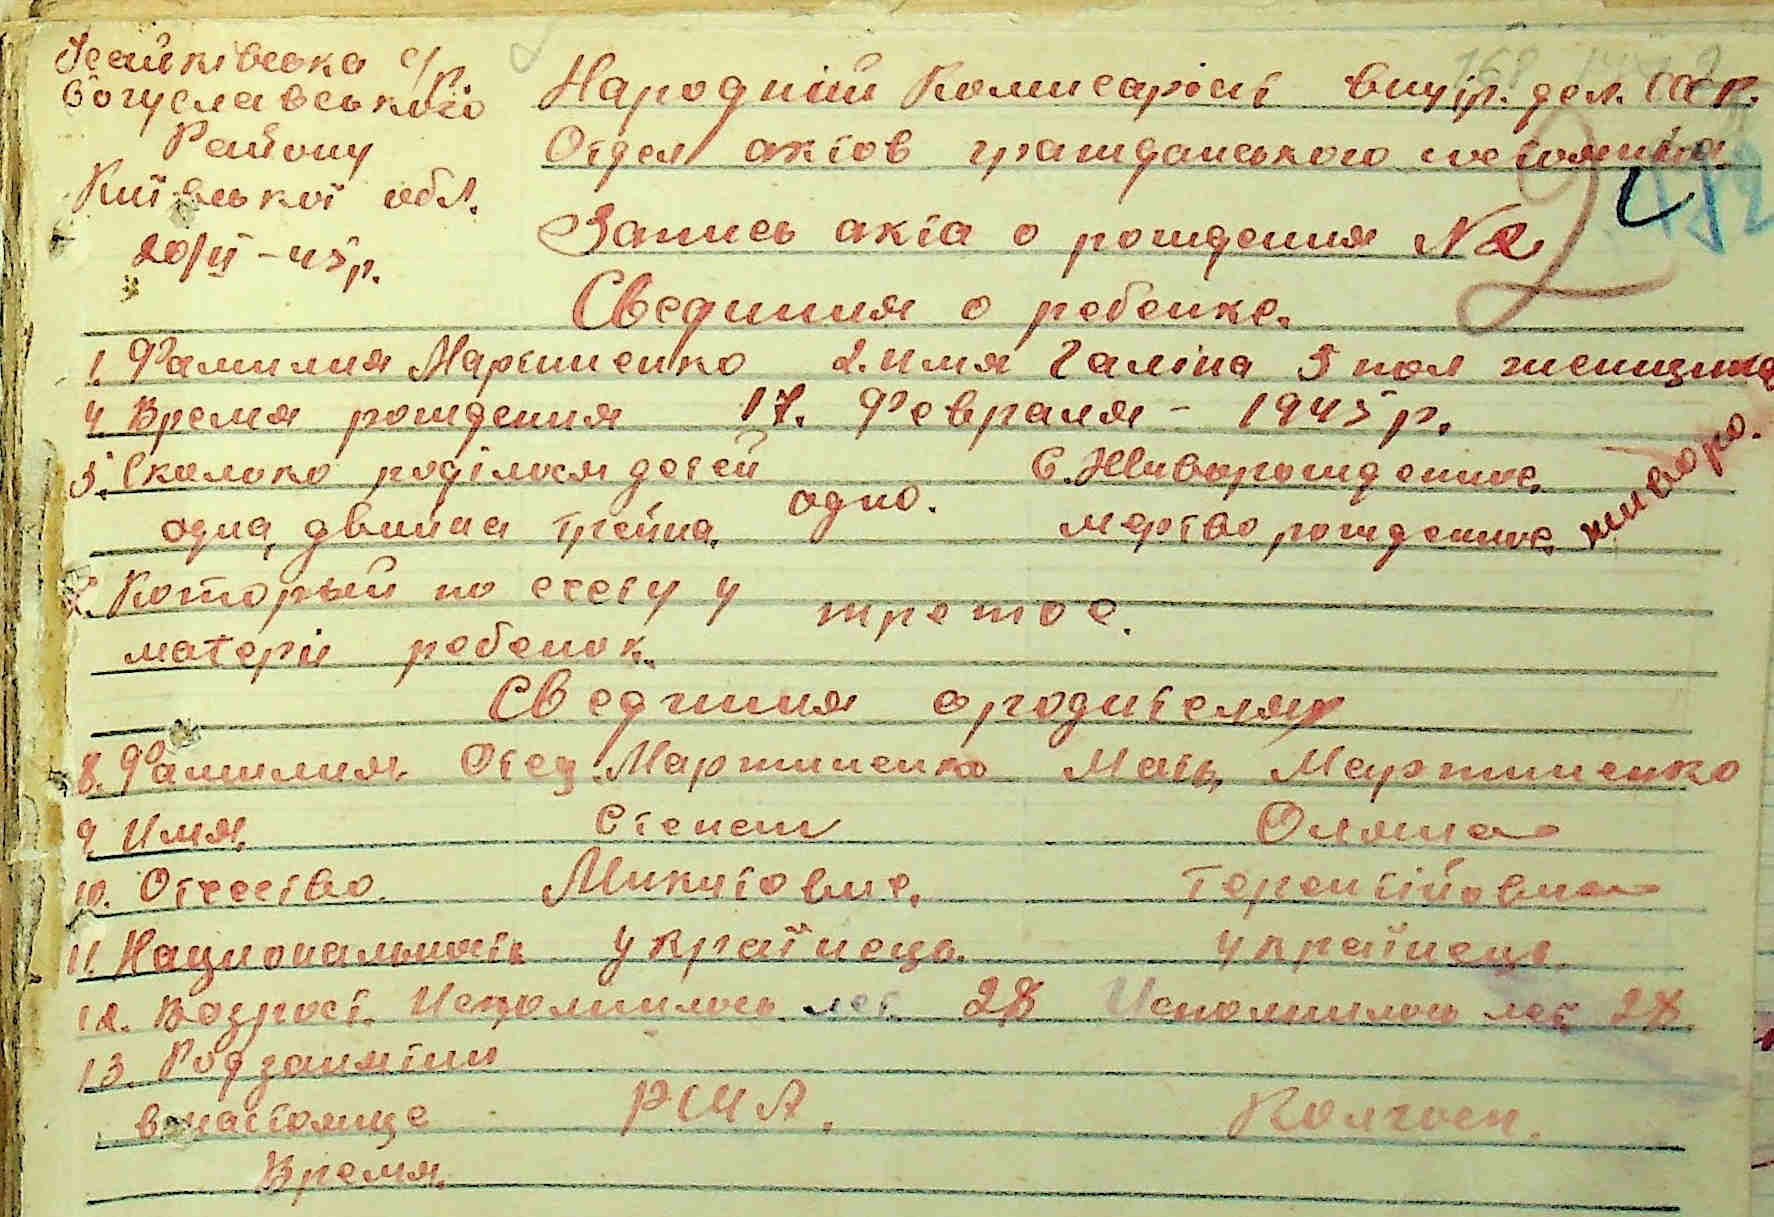 Ісайківська с/р
Богуславського
Району
Київської обл.
20/II – 45 р.
Народний Комисаріат внутр. дел. СССР.
Отдел актов гражданського состояния.
Запись акта о рождения № 2
2
Свединия о ребенке.
1. Фамилия Мартиненко 2. имя Галіна 3 пол женщина
4 Время рождения 17. Февраля – 1945 р.
5. Сколоко роділося детей одно. 6. Живорождение, живоро.
одна, двийна трейна. мертво рождение,
7. Который по счету у третое.
матері ребенок.
Свединия о родителях
8. Фамилия. Отец. Мартиненко Мать, Мартиненко
9. Имя. Степан Оляна
10. Отчество. Микитович. Терентійовна
11. Национальность українець. українець.
12. Возрост. Исполнилось лет. 28 Исполнилось лет 28.
13. Род занятии
в настоящие РКЧА. Колгосп.
Время.